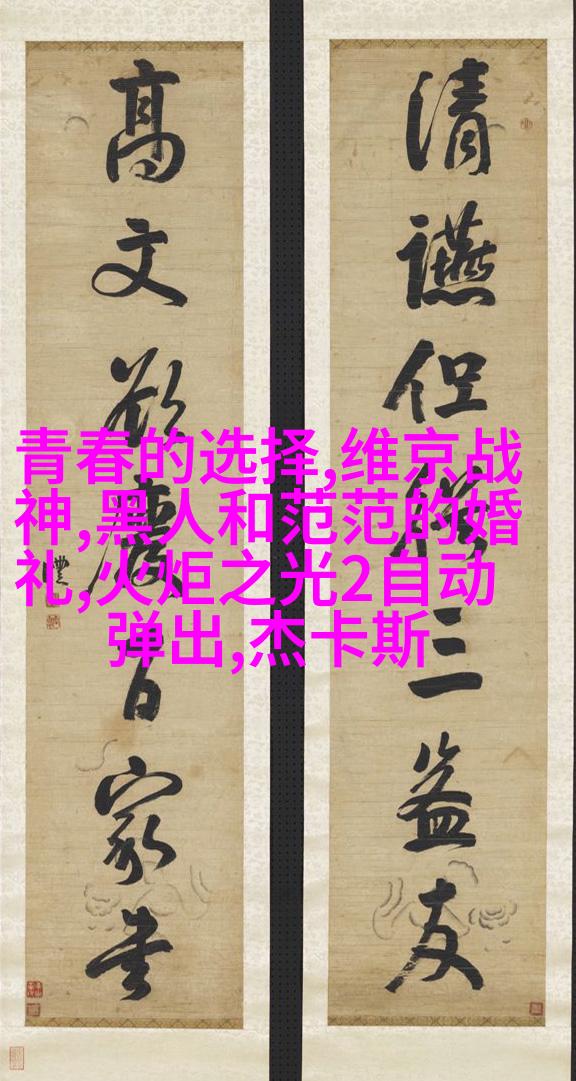 清讌但三益友
高文欲廢百家書
青春的选择,维京战
神,黑人和范范的婚
礼,火炬之光2自动
弹出,杰卡斯